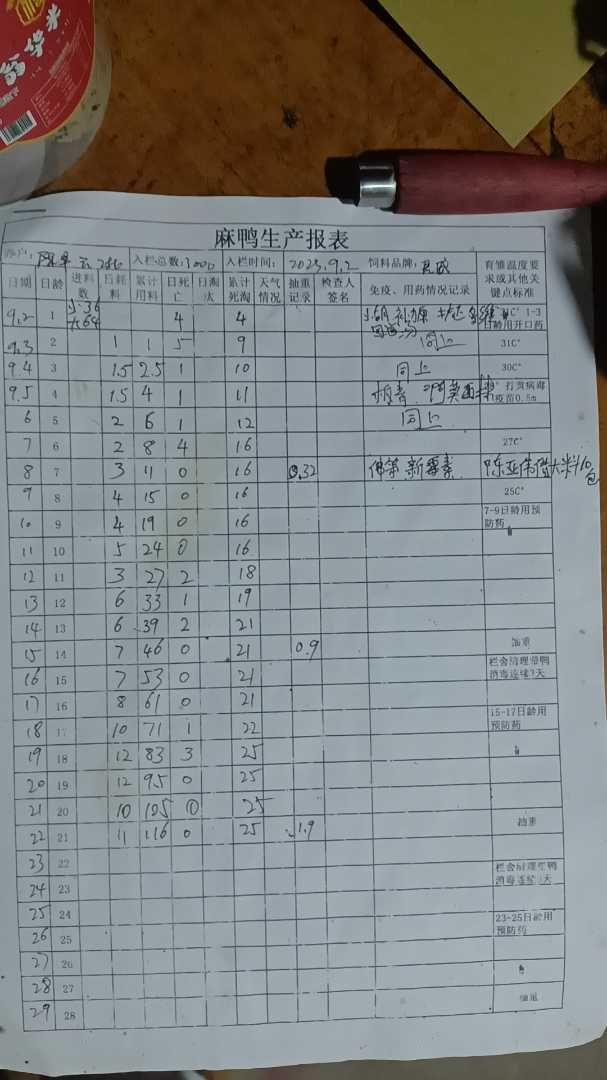 麻鸭生产报表
入栏总数:3000 入栏时间: 2023.9.2 饲料品牌:
日期 日龄 进料数 日耗料 累计用料 日死亡 日淘汰 累计死淘 天气情况 抽重记录 检查人签名 免疫、用药情况记录 育雏温度要求或其他关键点标准
9.2 1 小36 大64 4 4 C° 1-3日龄用开口药
9.3 2 1 1 5 9 同上 31C°
9.4 3 1.5 2.5 1 10 同上 30C°
9.5 4 1.5 4 1 11 打黄病毒疫苗0.5m
6 5 2 6 1 12 同上
7 6 2 8 4 16 27C°
8 7 3 11 0 16 0.32 新霉素
9 8 4 15 0 16 25C°
10 9 4 19 0 16 7-9日龄用预防药
11 10 5 24 0 16
12 11 3 27 2 18
13 12 6 33 1 19
14 13 6 39 2 21
15 14 7 46 0 21 0.9 抽重
16 15 7 53 0 21 栏舍清理带鸭消毒连续3天
17 16 8 61 0 21
18 17 10 71 1 22 15-17日龄用预防药
19 18 12 83 3 25
20 19 12 95 0 25
21 20 10 105 0 25
22 21 11 116 0 25 1.9 抽重
23 22
24 23 栏舍清理带鸭消毒连续3天
25 24
26 25 23-25日龄用预防药
27 26
28 27
29 28 抽重